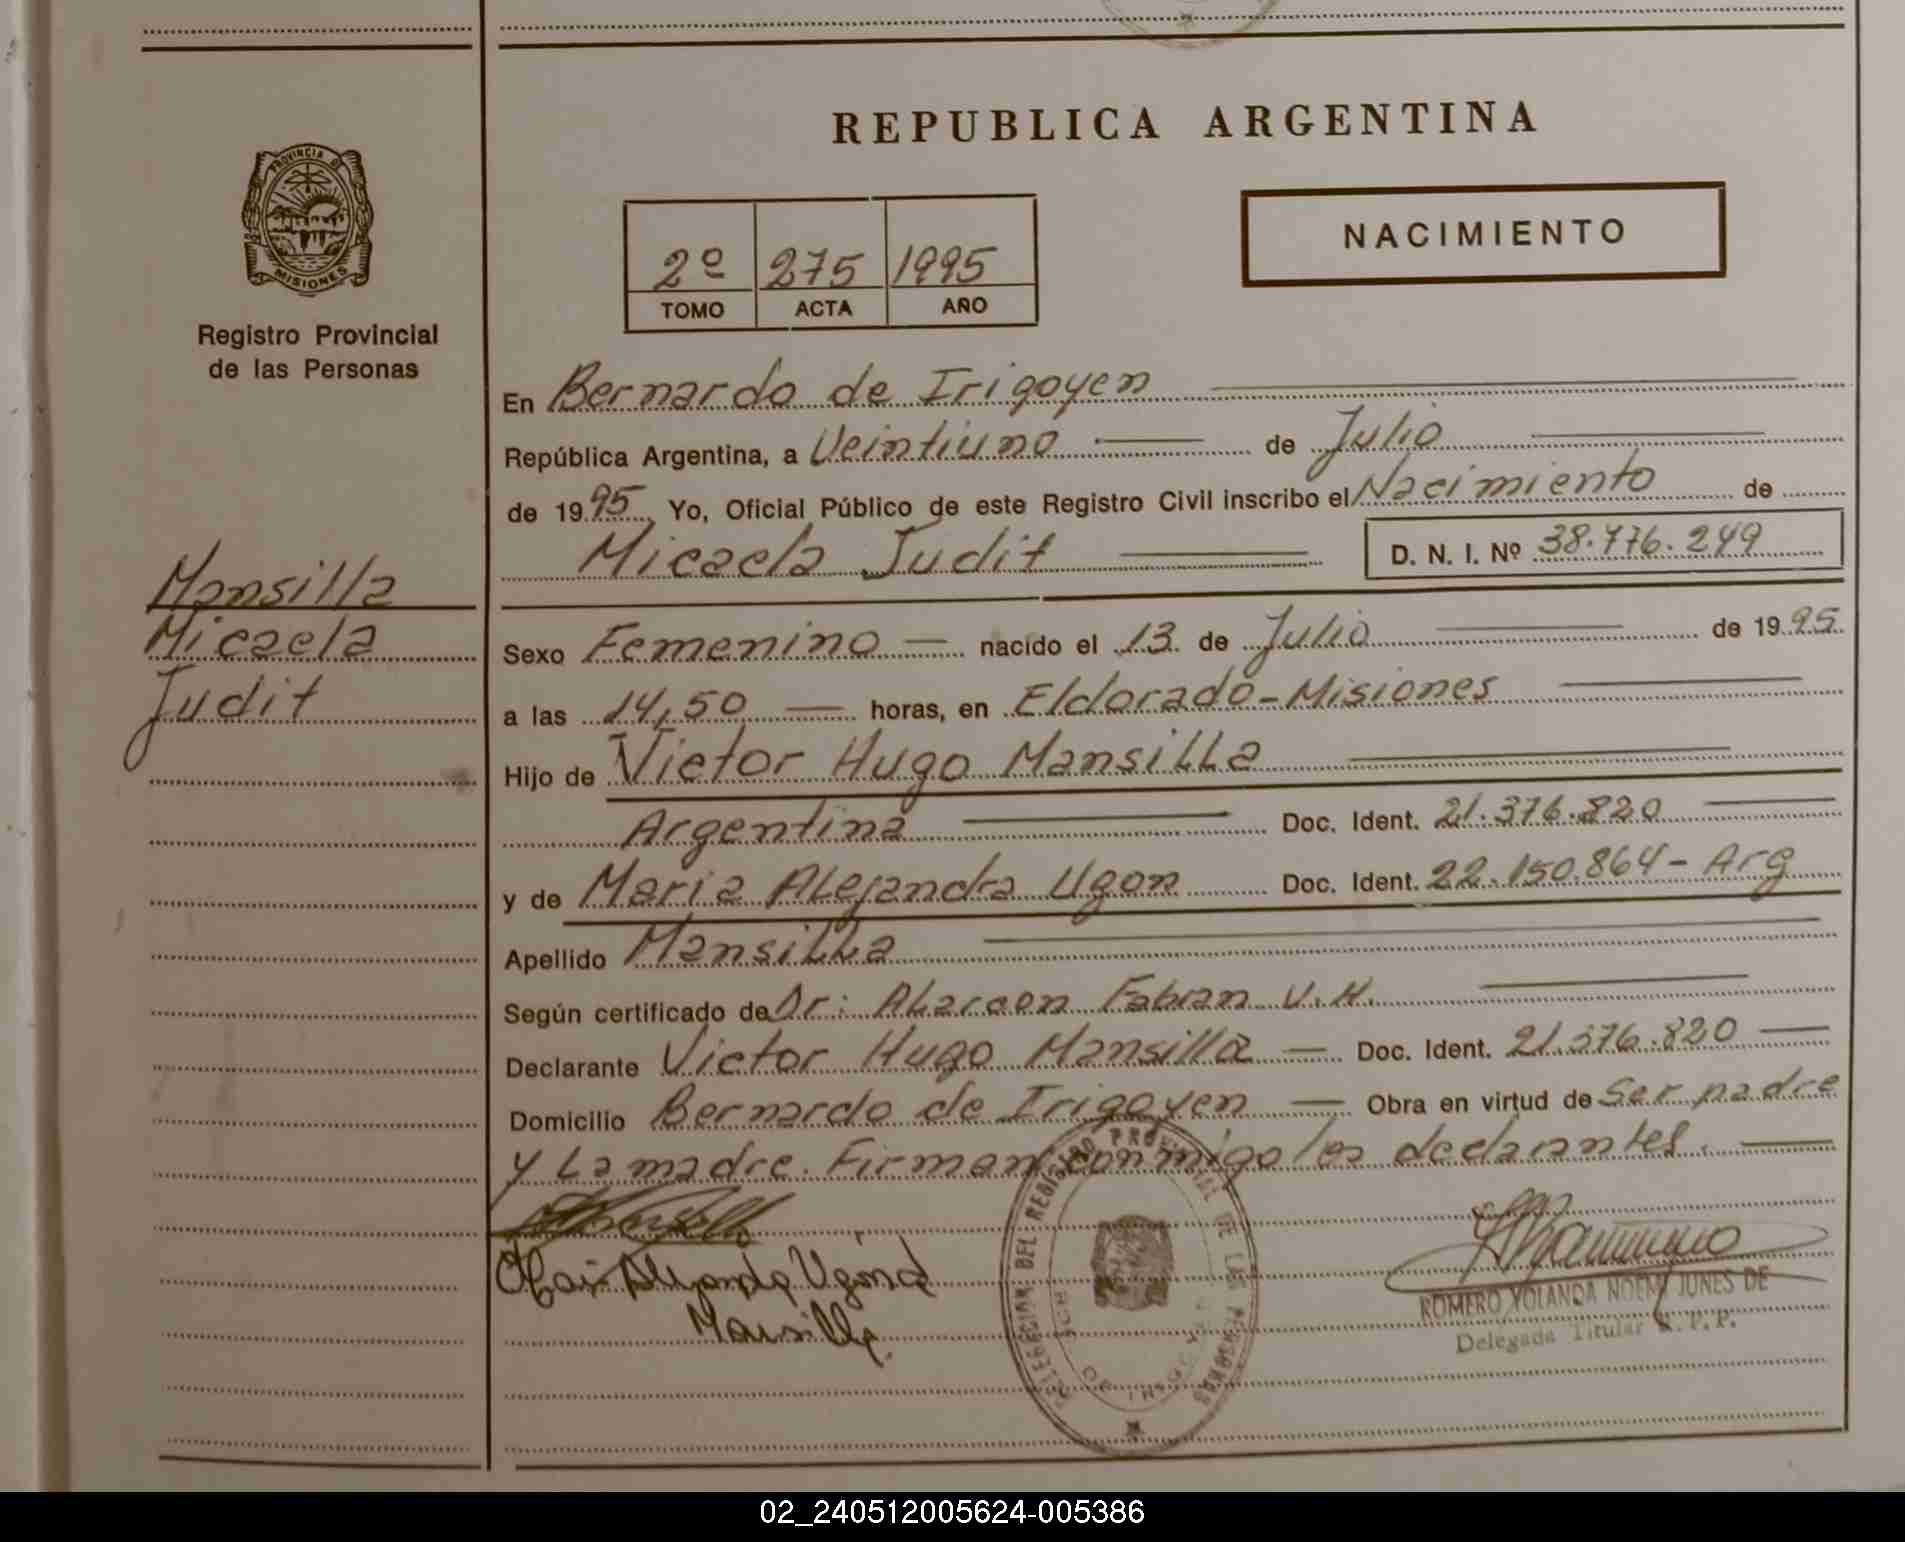 REPUBLICA ARGENTINA
PROVINCIA DE
MISIONES
Registro Provincial
de las Personas
2º 275 1995
TOMO ACTA AÑO
NACIMIENTO
Mansilla
Micaela
Judit
En Bernardo de Irigoyen
República Argentina, a Veintiuno de Julio
de 1995 Yo, Oficial Público de este Registro Civil inscribo el Nacimiento de
Micaela Judit D. N. I. Nº 38.776.249
Sexo Femenino — nacido el 13 de Julio de 1995
a las 14,50 — horas, en Eldorado-Misiones
Hijo de Victor Hugo Mansilla
Argentina Doc. Ident. 21.376.820
y de Maria Alejandra Ugon Doc. Ident. 22.150.864 - Arg
Apellido Mansilla
Según certificado de Dr: Alarcon Fabian V.H.
Declarante Victor Hugo Mansilla — Doc. Ident. 21.376.820
Domicilio Bernardo de Irigoyen — Obra en virtud de ser padre
y la madre. Firman conmigo los declarantes.
Alejandra Ugon de
Mansilla
DELEGACION DEL REGISTRO PROVINCIAL DE LAS PERSONAS
ROMERO YOLANDA NOEMI JUNES DE
Delegada Titular R.P.P.
02_240512005624-005386